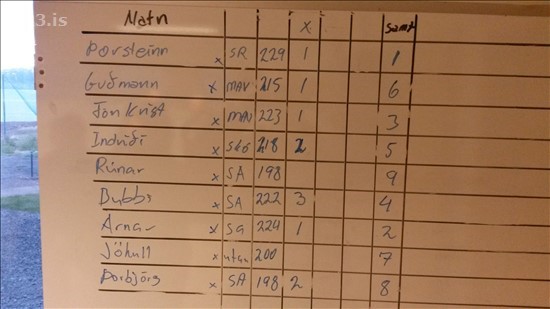 3.is
Nafn x samt
Þorsteinn x SR 229 1 1
Guðmann x MAV 215 1 6
Jón Krist x MAV 223 1 3
Indriði x Skó 218 2 5
Rúnar x SA 198 9
Bubbi x SA 222 3 4
Arnar x Sa 224 1 2
Jökull x utan 200 7
Þorbjörg x SA 198 2 8